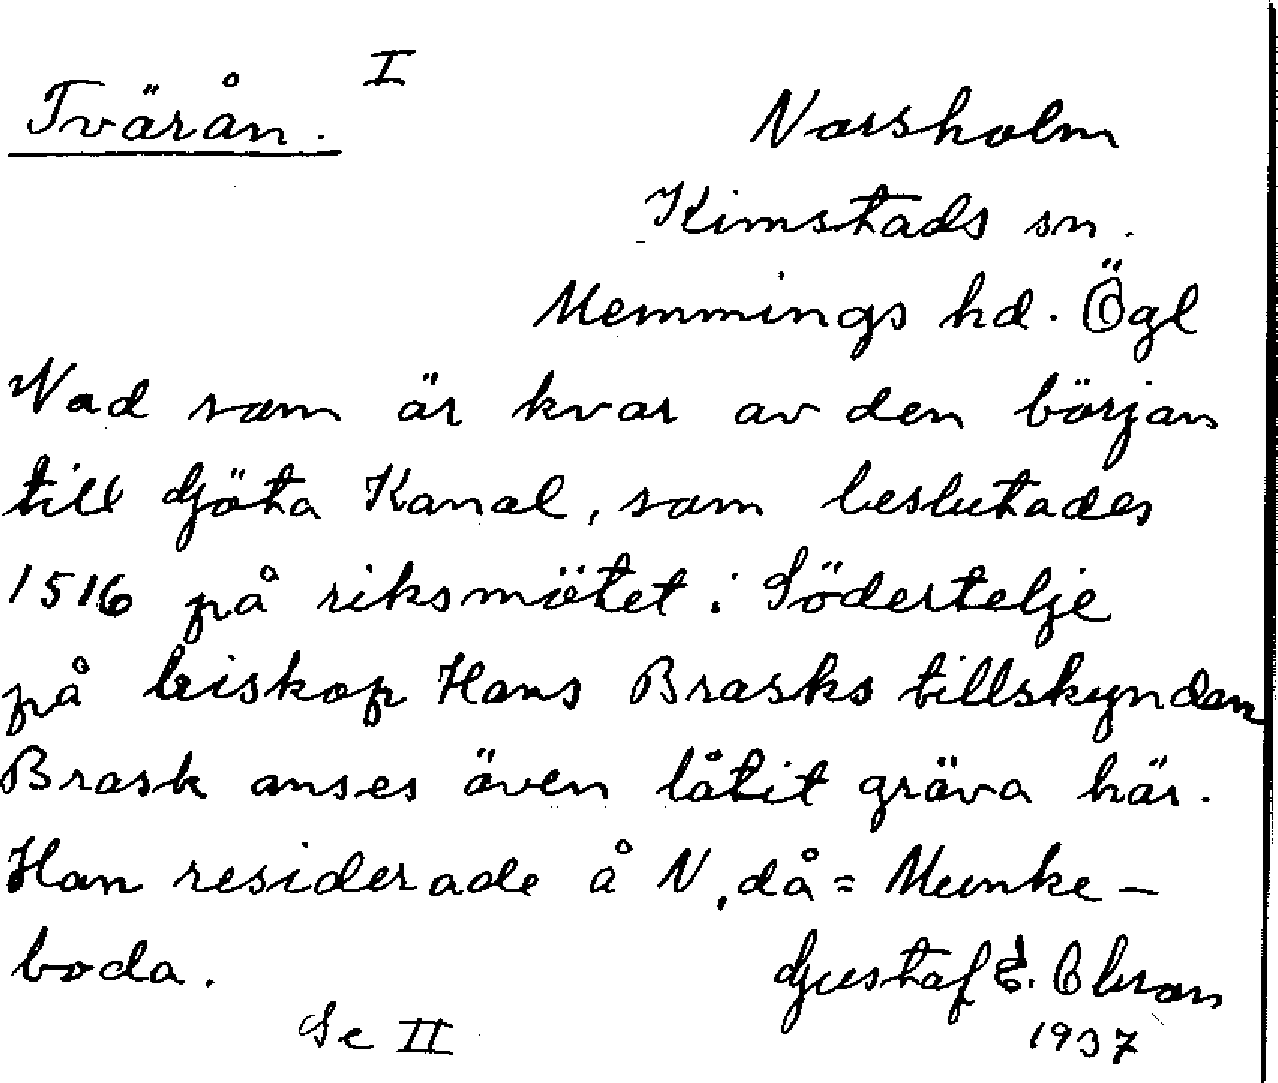 I
Tvärån.
Norsholm
Kimstads sn.
Memmings hd. Ögl
Vad som är kvar av den början
till Göta Kanal, som beslutades
1516 på riksmötet i Södertelje
på biskop Hans Brasks tillskyndan
Brask anses även låtit gräva här.
Han residerade å N, då = Munke-
boda.
Gustaf E.
Se II
1937